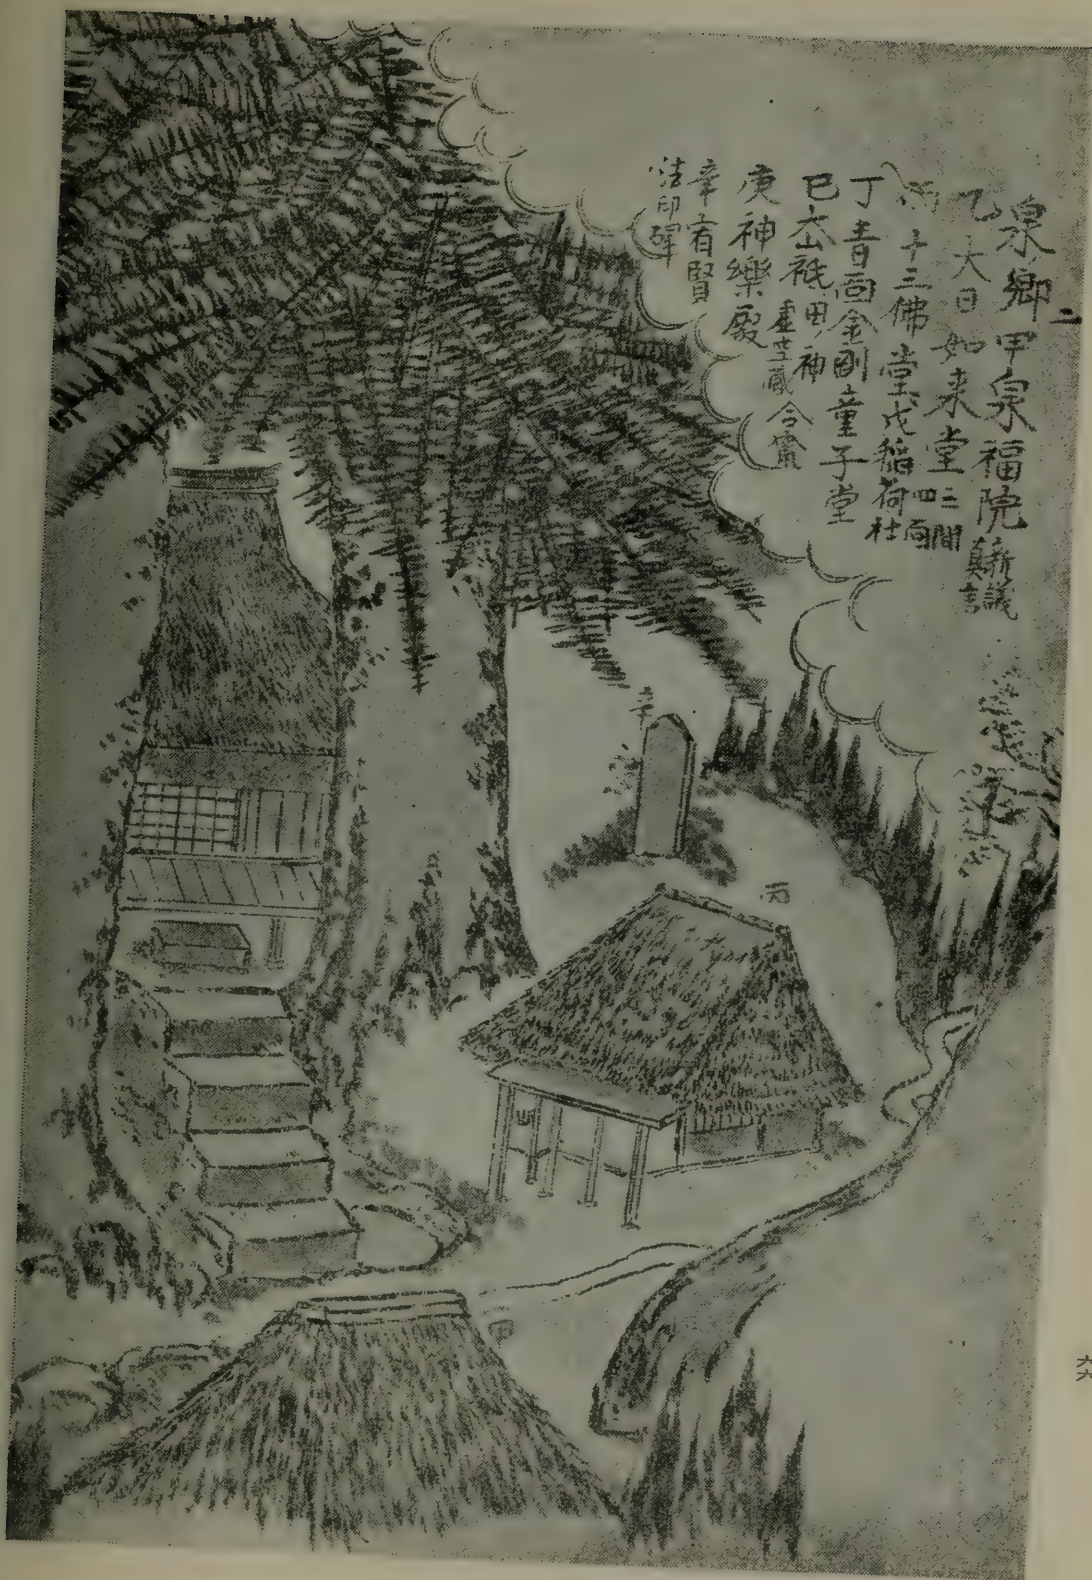 泉郷甲泉福院新議真言
乙大日如来堂三間四面
丙十三佛堂戊稲荷社
丁青面金剛童子堂
巳太山祇田神虚空蔵合
庚神樂殿
辛有賢法印碑
二
辛
丙
六六